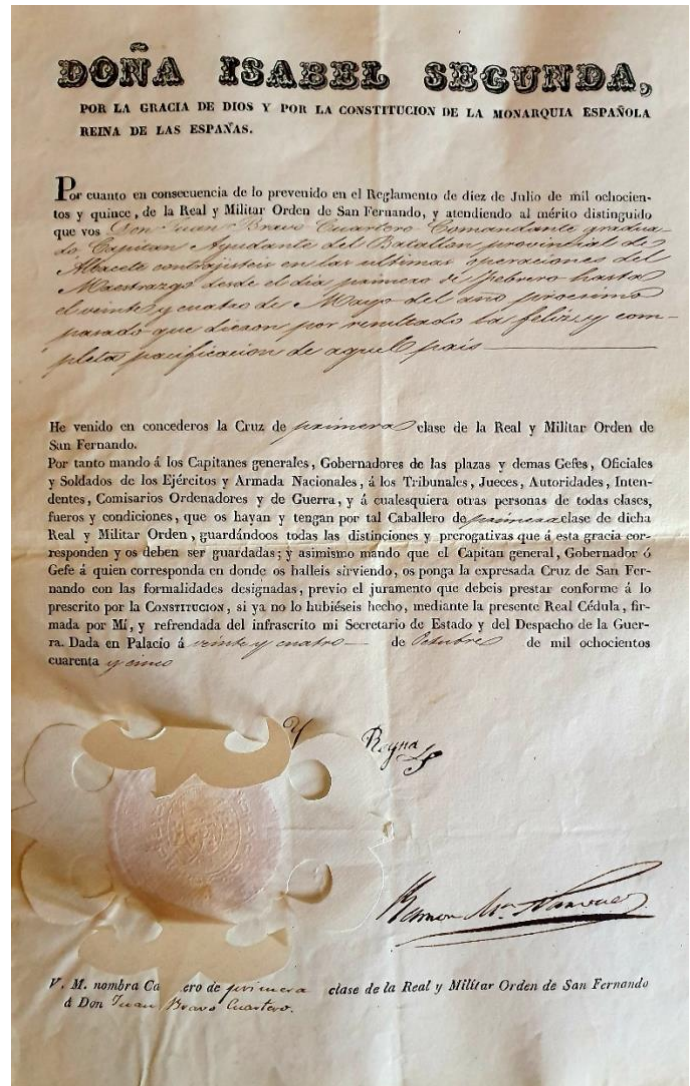 DOÑA ISABEL SEGUNDA,
POR LA GRACIA DE DIOS Y POR LA CONSTITUCION DE LA MONARQUIA ESPAÑOLA
REINA DE LAS ESPAÑAS.
Por cuanto en consecuencia de lo prevenido en el Reglamento de diez de Julio de mil ochocien-
tos y quince, de la Real y Militar Orden de San Fernando, y atendiendo al mérito distinguido
que vos Don Juan Bravo Cuartero Comandante gradua-
do Capitan Ayudante del Batallon provincial de
Albacete contrajisteis en las ultimas operaciones del
Maestrazgo desde el dia primero de Febrero hasta
el veinte y cuatro de Mayo del año procsimo
pasado que dieron por resultado la feliz y com-
pleta pacificacion de aquel pais
He venido en concederos la Cruz de primera clase de la Real y Militar Orden de
San Fernando.
Por tanto mando á los Capitanes generales, Gobernadores de las plazas y demas Gefes, Oficiales
y Soldados de los Ejércitos y Armada Nacionales, á los Tribunales, Jueces, Autoridades, Inten-
dentes, Comisarios Ordenadores y de Guerra, y á cualesquiera otras personas de todas clases,
fueros y condiciones, que os hayan y tengan por tal Caballero de primera clase de dicha
Real y Militar Orden, guardándoos todas las distinciones y prerogativas que á esta gracia cor-
responden y os deben ser guardadas; y asimismo mando que el Capitan general, Gobernador ó
Gefe á quien corresponda en donde os halleis sirviendo, os ponga la expresada Cruz de San Fer-
nando con las formalidades designadas, previo el juramento que debeis prestar conforme á lo
prescrito por la CONSTITUCION, si ya no lo hubiéseis hecho, mediante la presente Real Cédula, fir-
mada por Mí, y refrendada del infrascrito mi Secretario de Estado y del Despacho de la Guer-
ra. Dada en Palacio á veinte y cuatro de Octubre de mil ochocientos
cuarenta y cinco
Y Reyna
Ramon Mª Narvaez
V. M. nombra Ca ero de primera clase de la Real y Militar Orden de San Fernando
á Don Juan Bravo Cuartero.